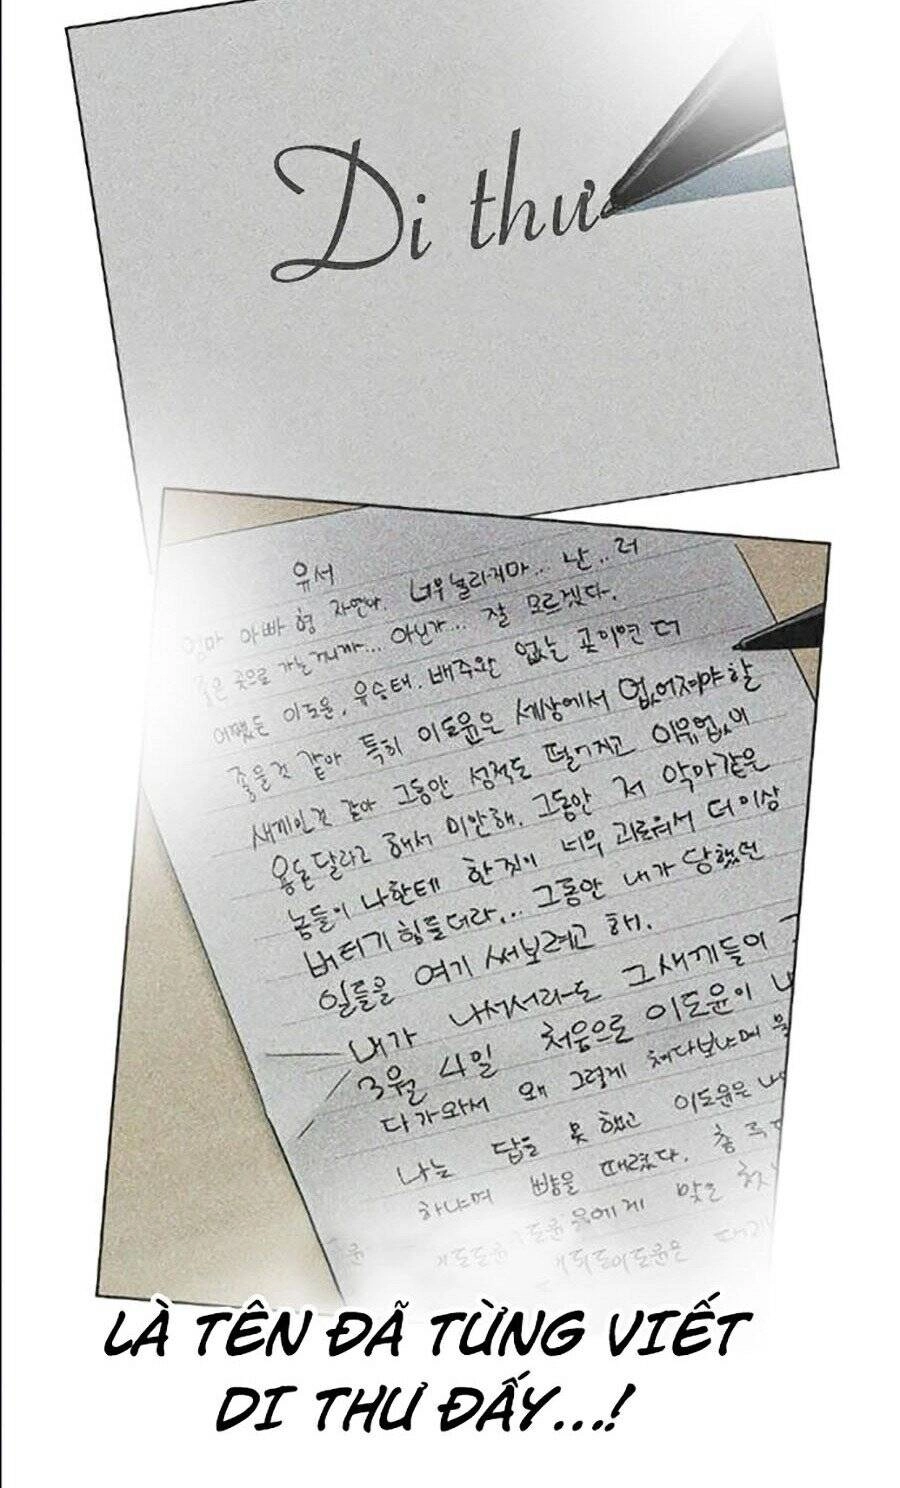 Di thư
유서
엄마 아빠 형 자연아. 너무 놀라지마... 난.. 더
좋은 곳으로 가는거니까... 아닌가... 잘 모르겠다.
어쨌든 이도윤, 유승태, 배주완 없는 곳이면 더
좋을것 같아 특히 이도윤은 세상에서 없어져야할
새끼인것 같아 그동안 성적도 떨어지고 이유없이
용돈달라고 해서 미안해. 그동안 저 악마같은
놈들이 나한테 한짓이 너무 괴로워서 더이상
버티기힘들더라... 그동안 내가 당했던
일들을 여기 써보려고 해.
내가 나서서라도 그새끼들이
3월 4일 처음으로 이도윤이
다가와서 왜 그렇게 쳐다보냐며
나는 답을 못 했고 이도윤은
하냐며 뺨을 때렸다.
맞은
LÀ TÊN ĐÃ TỪNG VIẾT
DI THƯ ĐẤY...!